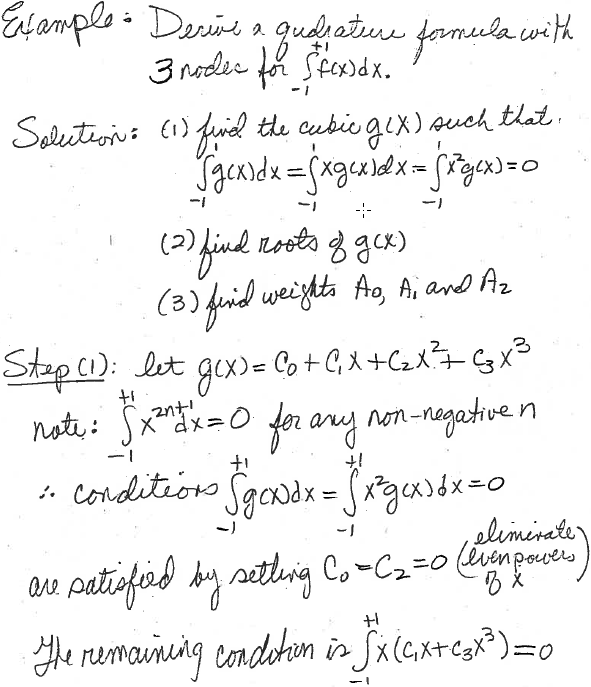 Example: Derive a qudrature formula with
3 nodes for ∫₋₁⁺¹ f(x)dx.
Solution: (1) find the cubic g(x) such that.
∫₋₁¹ g(x)dx = ∫₋₁¹ xg(x)dx = ∫₋₁¹ x²g(x) = 0
(2) find roots of g(x)
(3) find weights A₀, A₁ and A₂
Step (1): let g(x) = C₀ + C₁x + C₂x² + C₃x³
note: ∫₋₁⁺¹ x²ⁿ⁺¹dx = 0 for any non-negative n
∴ conditions ∫₋₁⁺¹ g(x)dx = ∫₋₁⁺¹ x²g(x)dx = 0
are satisfied by setting C₀ = C₂ = 0 (eliminate even powers of x)
The remaining condition is ∫₋₁⁺¹ x(C₁x + C₃x³) = 0